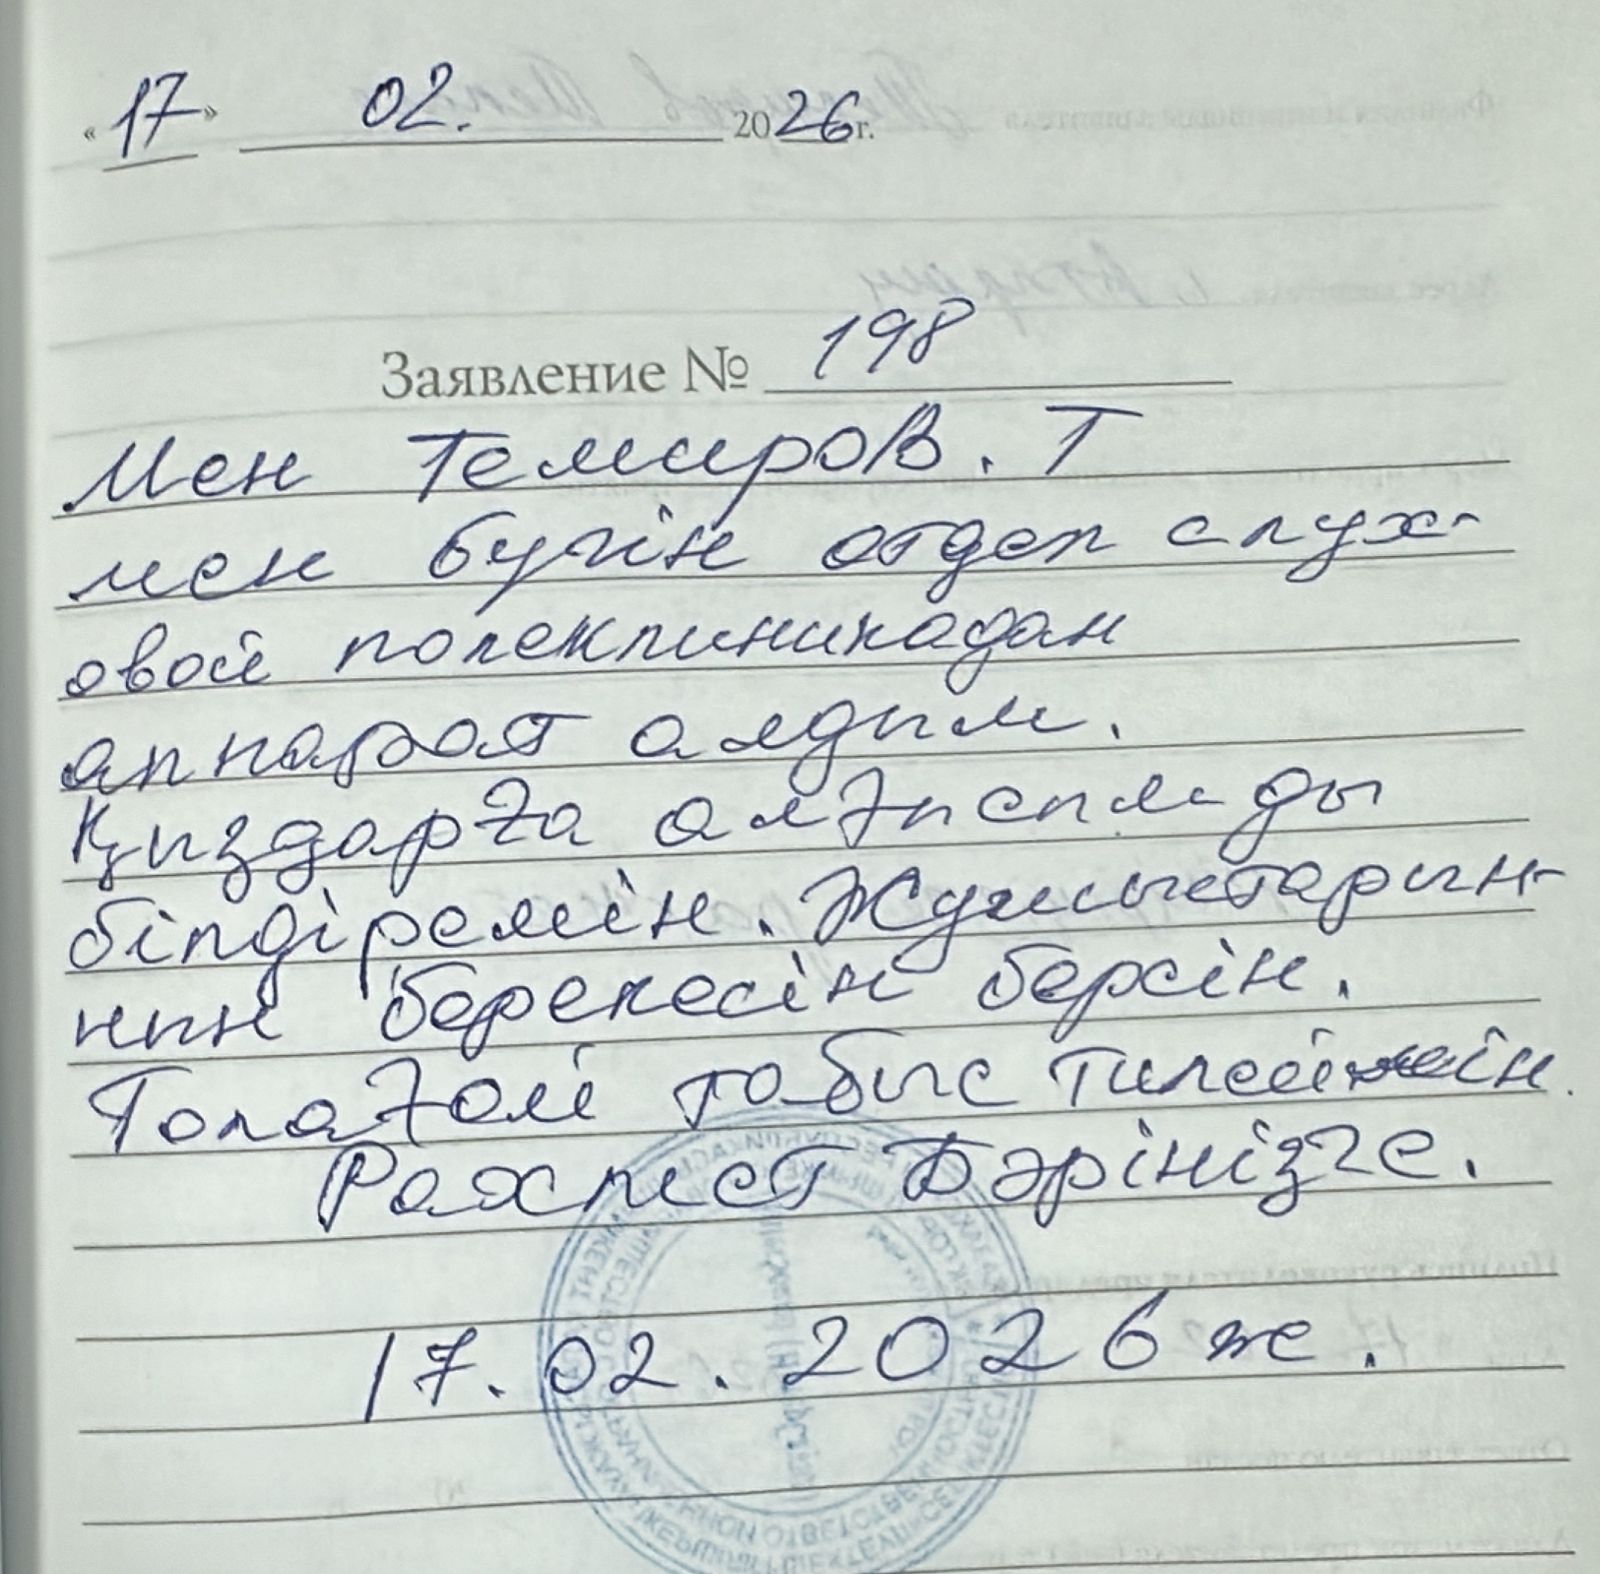 «17» 02. 2026 г.
Заявление № 198
Мен Темиров. Т
мен бугін отдел слух-
овой полеклиникадан
аппарат алдым.
Қыздарға алғысымды
білдіремін. Жумыстарын-
нын берекесін берсін.
Толағай табыс тилеймін.
Рахмет Бәрінізге.
17.02.2026 ж.